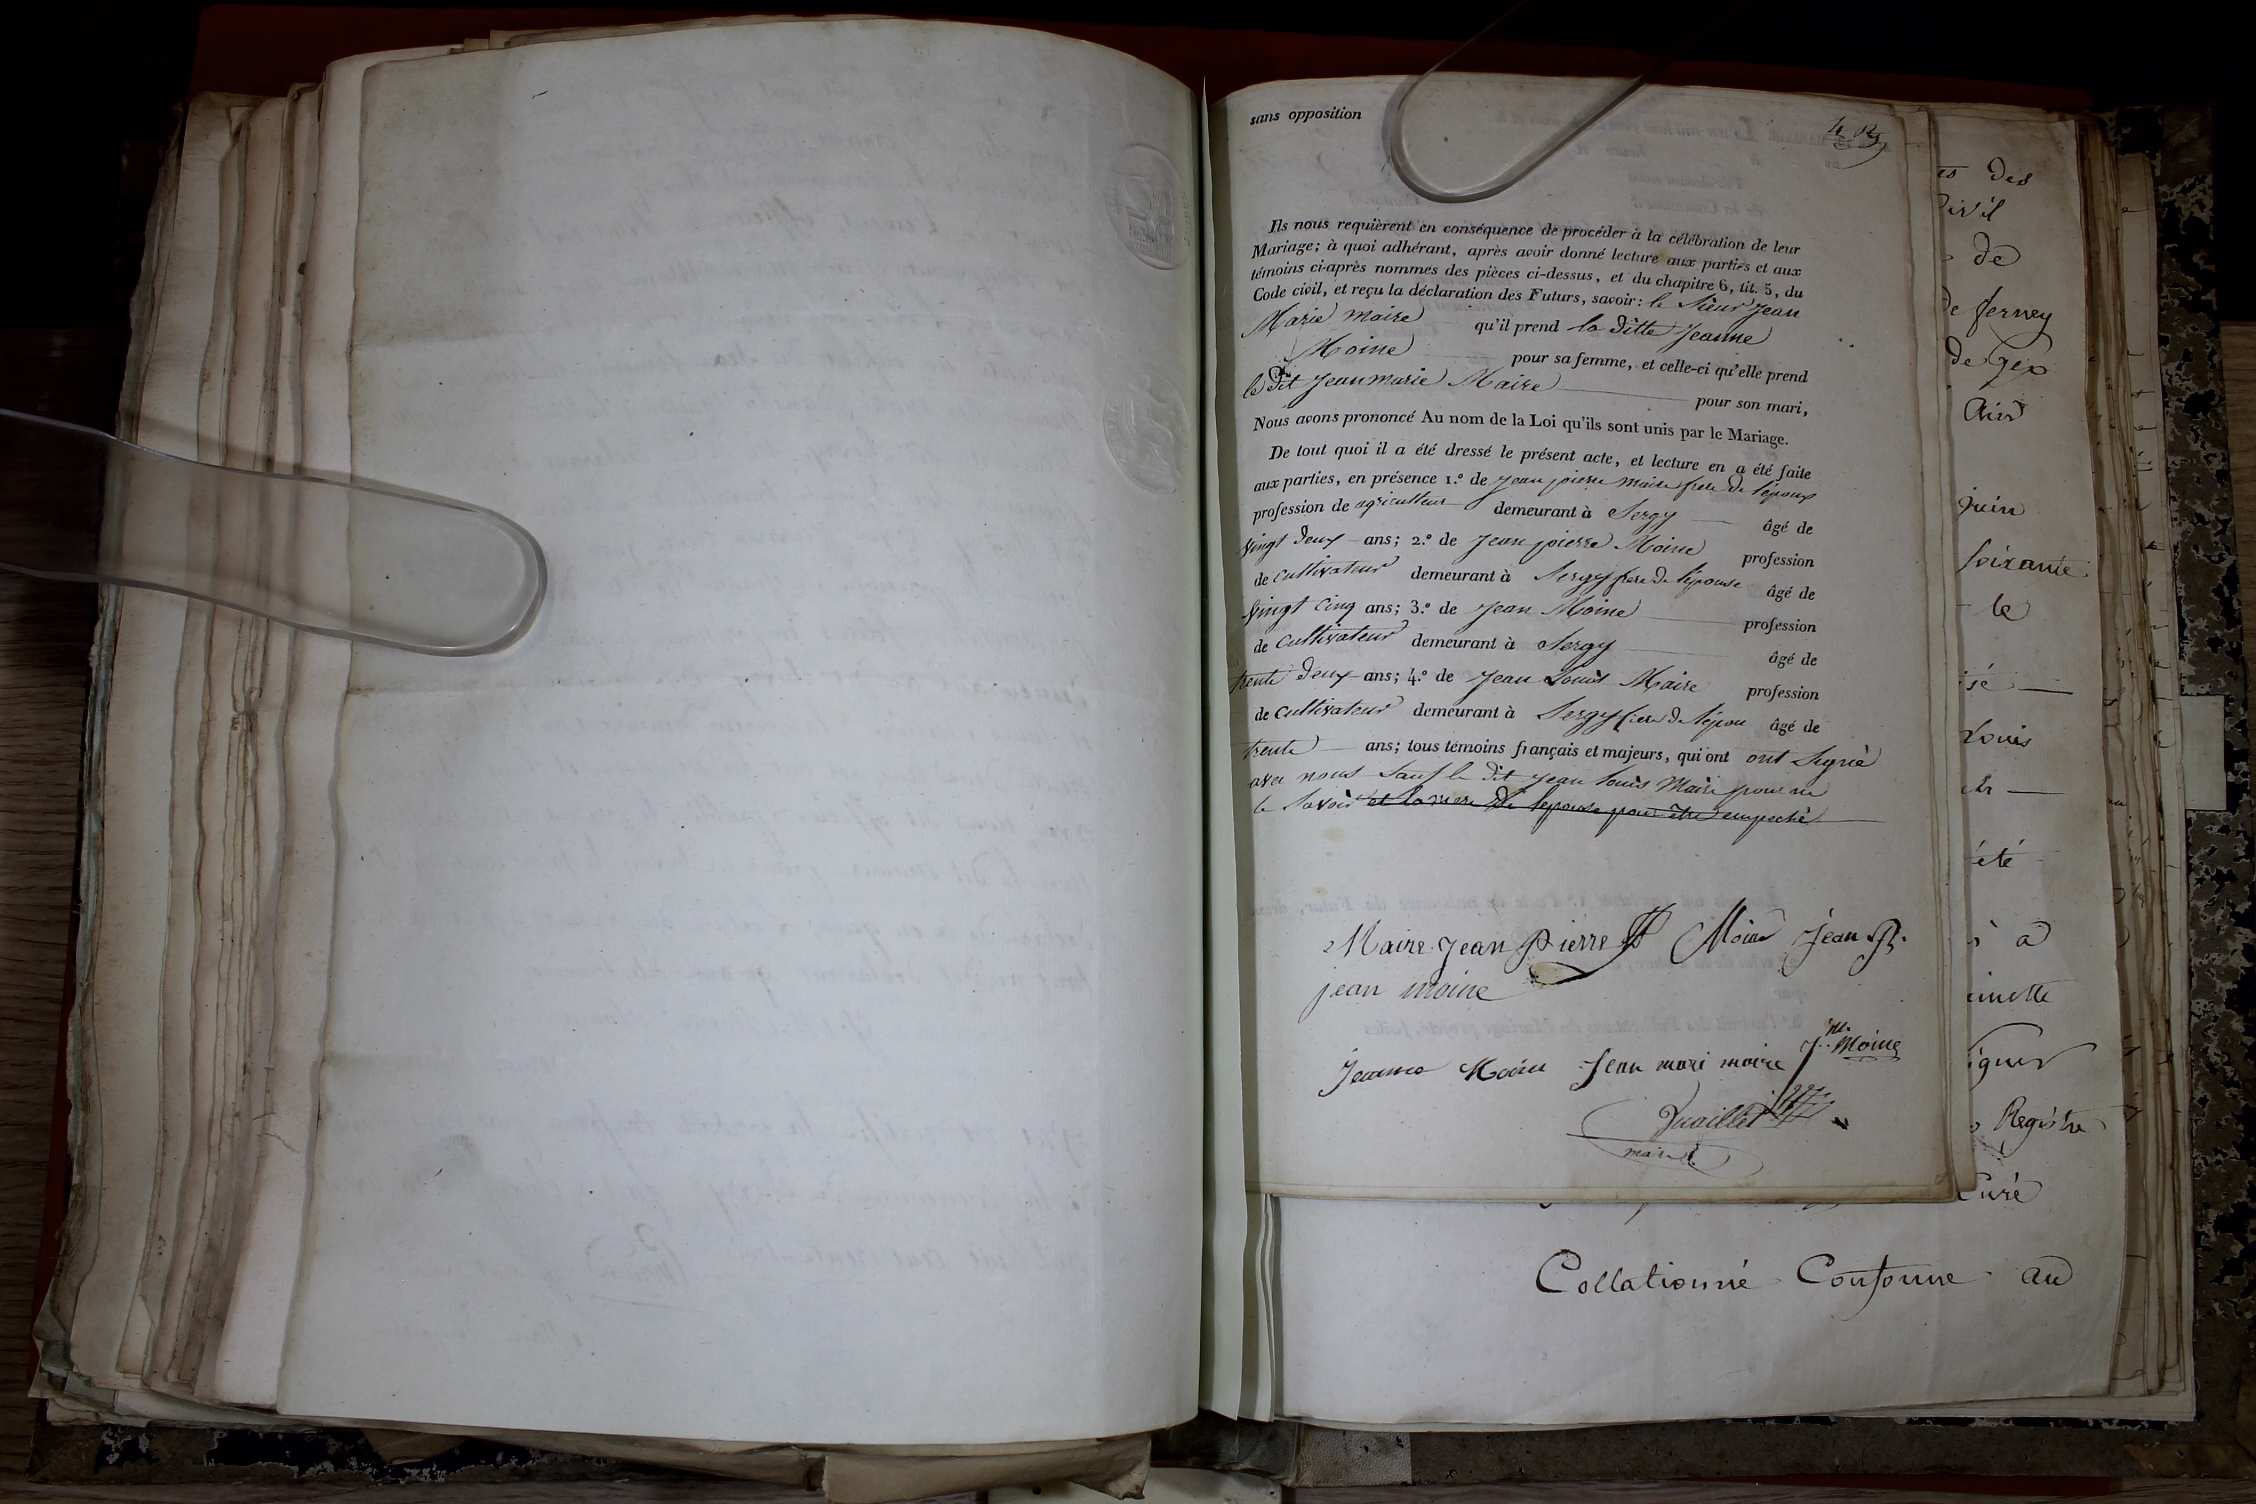 sans opposition
Ils nous requièrent en conséquence de procéder à la célébration de leur
Mariage; à quoi adhérant, après avoir donné lecture aux parties et aux
témoins ci-après nommés des pièces ci-dessus, et du chapitre 6, tit. 5, du
Code civil, et reçu la déclaration des Futurs, savoir: le Sieur Jean
Marie Maire qu'il prend la ditte Jeanne
Moine pour sa femme, et celle-ci qu'elle prend
le dit Jean Marie Maire pour son mari,
Nous avons prononcé Au nom de la Loi qu'ils sont unis par le Mariage.
De tout quoi il a été dressé le présent acte, et lecture en a été faite
aux parties, en présence 1.º de Jean pierre Maire frere de l'époux
profession de agriculteur demeurant à Sergy âgé de
vingt deux ans; 2.º de Jean pierre Moine profession
de cultivateur demeurant à Sergy frere de l'épouse âgé de
vingt cinq ans; 3.º de Jean Moine profession
de cultivateur demeurant à Sergy âgé de
trente deux ans; 4.º de Jean Louis Maire profession
de cultivateur demeurant à Sergy frere de l'épou âgé de
trente ans; tous témoins français et majeurs, qui ont ont signé
avec nous sauf le dit Jean Louis Maire pour ne
le savoir et la mere de l'epouse pour être empeché
Maire Jean Pierre Moine Jean P.
jean moine
Jeanne Moine Jean mari maire J.. M. Moine
maire
des
Civil
de
de ferney
de Gex
Ain
juin
soixante
le
Louis
été
à
Registre
Curé
Collationné Conforme au